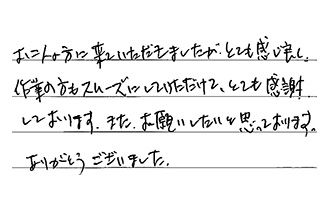 お二人の方に来ていただきましたが、とても感じ良く、
作業の方もスムーズにしていただけて、とても感謝
しております。また、お願いしたいと思っております。
ありがとうございました。